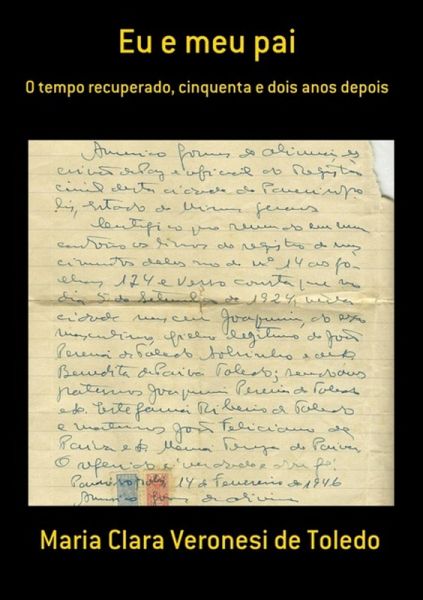 Eu e meu pai
O tempo recuperado, cinquenta e dois anos depois
Americo Gomes de Oliveira, es
crivão de Paz e oficial do Registro
civil desta cidade de
Estado de Minas Gerais
Certifico que revendo em meu
cartorio os livros de registro de nas
cimentos deles no de nº 14 as fo
lhas 174 e verso consta que no
dia 5 de Setembro de 1924, nesta
cidade nasceu Joaquim, do sexo
masculino, filho legitimo de João
Pereira de Toledo Sobrinho e de
Benedita de Paiva Toledo; sendo avós
paternos Joaquim Pereira de Toledo
e Ribeiro de Toledo
e maternos João Feliciano de
Paiva e Maria Tereza de Paiva
O referido é verdade e dou fé.
14 de Fevereiro de 1946
Americo Gomes de Oliveira
Maria Clara Veronesi de Toledo